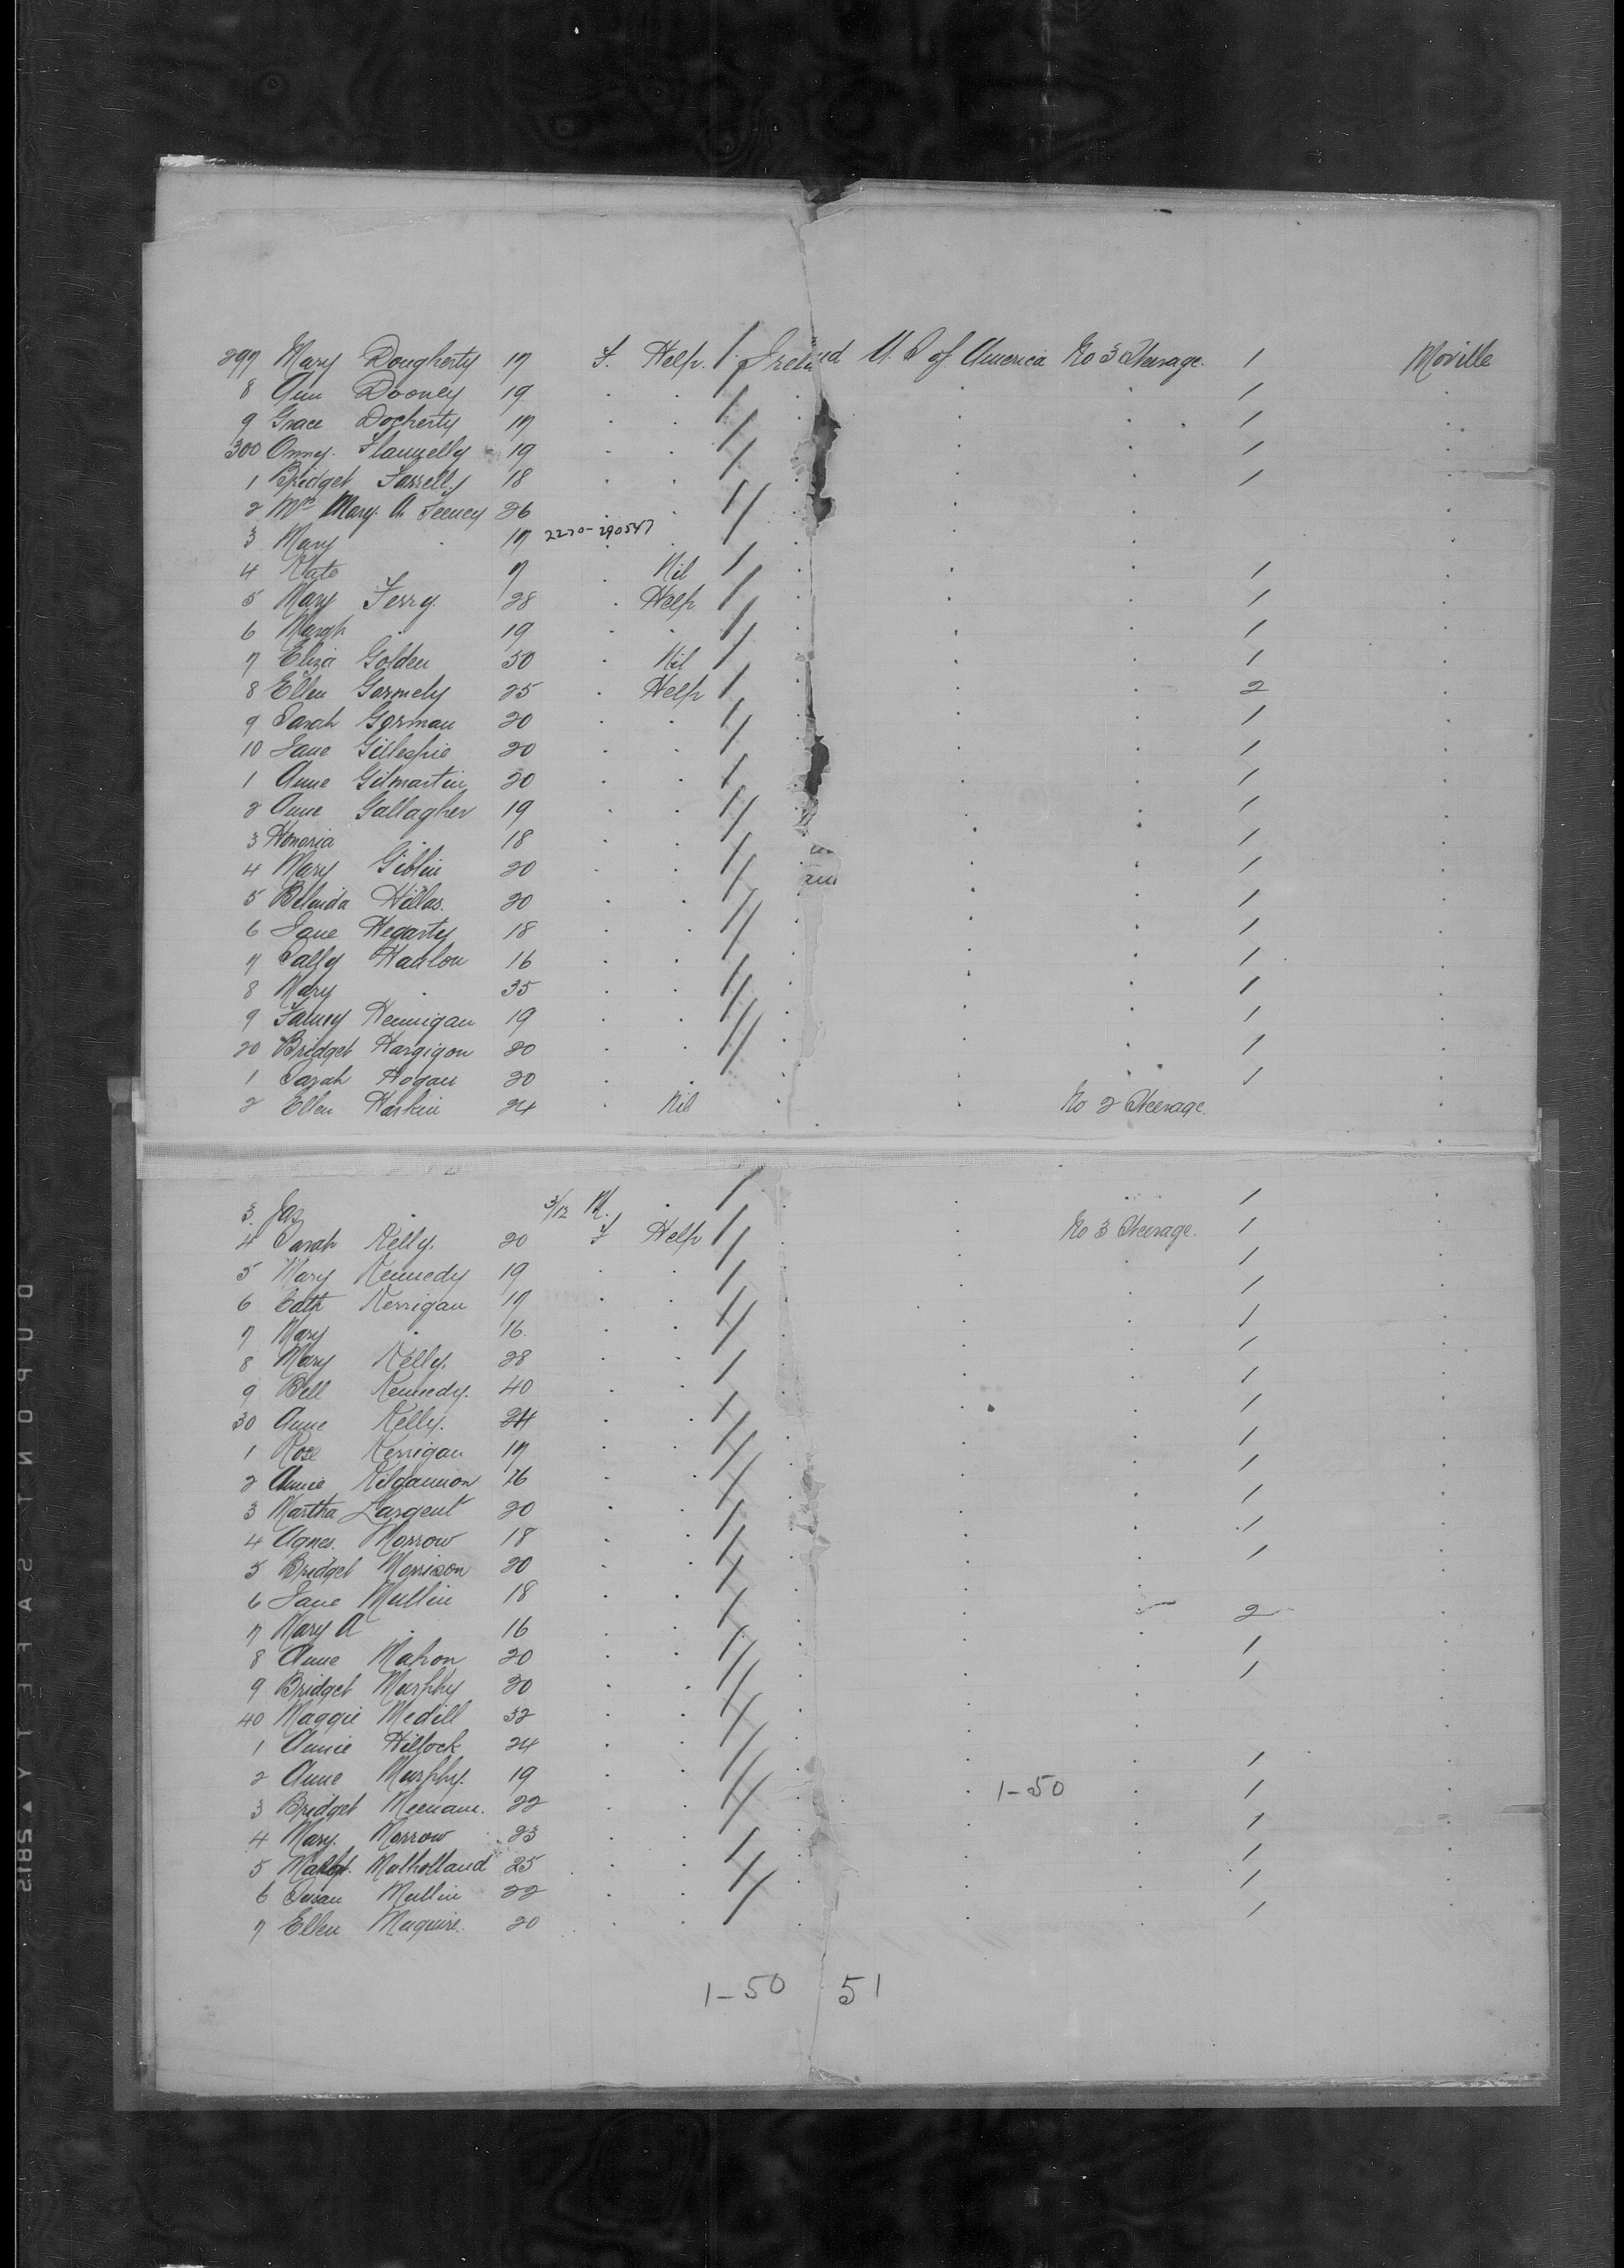 297 Mary Dougherty 17 F. Help. Ireland U. S of America No 3 Steerage. 1 Moville
8 Ann Dooney 19 1
9 Grace Docherty 17 1
300 Onny. Flannelly 19 1
1 Bridget Farrell 18 1
2 Mrs Mary A. Feeney 26
3 Mary 17 2270-290547
4 Kate 7 Nil 1
5 Mary Ferry. 28 Help 1
6 Margt 19 1
7 Eliza Golden 50 Nil 1
8 Ellen Gormely 25 Help 2
9 Sarah Gorman 20 1
10 Jane Gillespie 20 1
1 Anne Gilmartin 20 1
2 Anne Gallagher 19 1
3 Honoria 18 1
4 Mary Giblin 20 1
5 Belinda Hillas. 20 1
6 Jane Hegarty 18 1
7 Sally Hanlon 16 1
8 Mary 35 1
9 Fanny Hennigan 19 1
20 Bridget Hargigon 20 1
1 Sarah Hogan 20 1
2 Ellen Harkin 24 Nil No 2 Steerage.
3. Jas 3/12 M. 1
4 Sarah Kelly. 20 F Help No 3 Steerage. 1
5 Mary Kennedy 19 1
6 Cath Kerrigan 17 1
7 Mary 16. 1
8 Mary Kelly. 28 1
9 Bell Kennedy. 40 1
30 Anne Kelly. 24 1
1 Rose Kerrigan 17 1
2 Annie Kilgannon 26 1
3 Martha Largent 20 1
4 Agnes. Morrow 18 1
5 Bridget Morrison 20 1
6 Jane Mullin 18
7 Mary A 16 2
8 Anne Mahon 20 1
9 Bridget Murphy 20 1
40 Maggie Medill 32
1 Annie Hillock 24
2 Anne Murphy. 19 1
3 Bridget Meenam. 22 1-50 1
4 Mary. Morrow 23 1
5 Margt. Mulholland 25 1
6 Susan Mullin 22 1
7 Ellen Maguire. 20 1
1-50 51
DUPONT SAFETY 2815